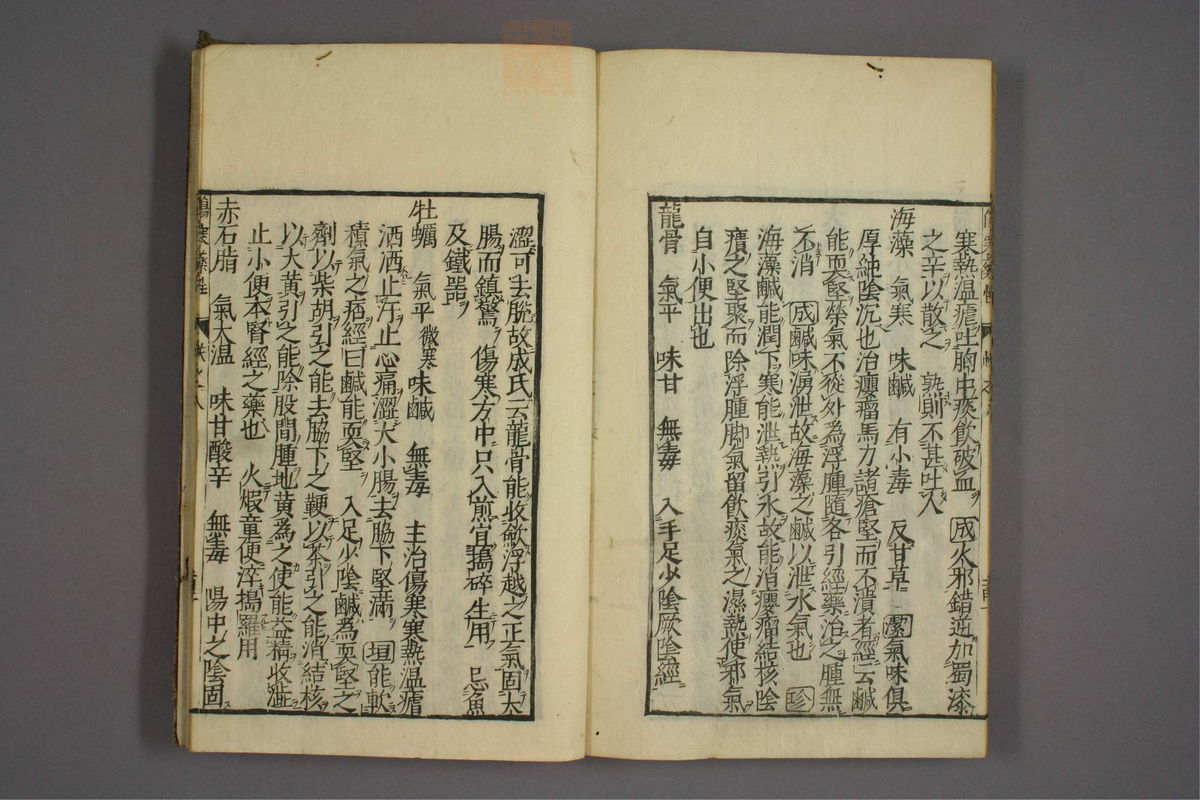 寒熱温瘧吐胸中痰飲破血 成火邪錯逆加蜀漆
之辛以散之 熟則不甚吐人
海藻 氣寒 味鹹 有小毒 反甘草 潔氣味俱
厚純陰沉也治癭瘤馬刀諸瘡堅而不潰者經云鹹
能耎堅榮氣不從外為浮腫隨各引經藥治之腫無
不消 成鹹味涌泄故海藻之鹹以泄水氣也 珍
海藻鹹能潤下寒能泄熱引水故能消癭瘤結核陰
㿉之堅聚而除浮腫脚氣留飲痰氣之濕熱使邪氣
自小便出也
龍骨 氣平 味甘 無毒 入手足少陰厥陰經
澀可去脫故成氏云龍骨能收斂浮越之正氣固大
腸而鎮驚 傷寒方中只入煎宜擣碎生用 忌魚
及鐵器
牡蠣 氣平微寒 味鹹 無毒 主治傷寒寒熱温瘧
洒洒止汗止心痛澀大小腸去脇下堅滿 垣能軟
積氣之痞經曰鹹能耎堅 入足少陰鹹為耎堅之
劑以柴胡引之能去脇下之鞕以茶引之能消結核
以大黃引之能除股間腫地黃為之使能益精收澁
止小便本腎經之藥也 火煆童便淬搗羅用
赤石脂 氣大温 味甘酸辛 無毒 陽中之陰固
傷寒藥性